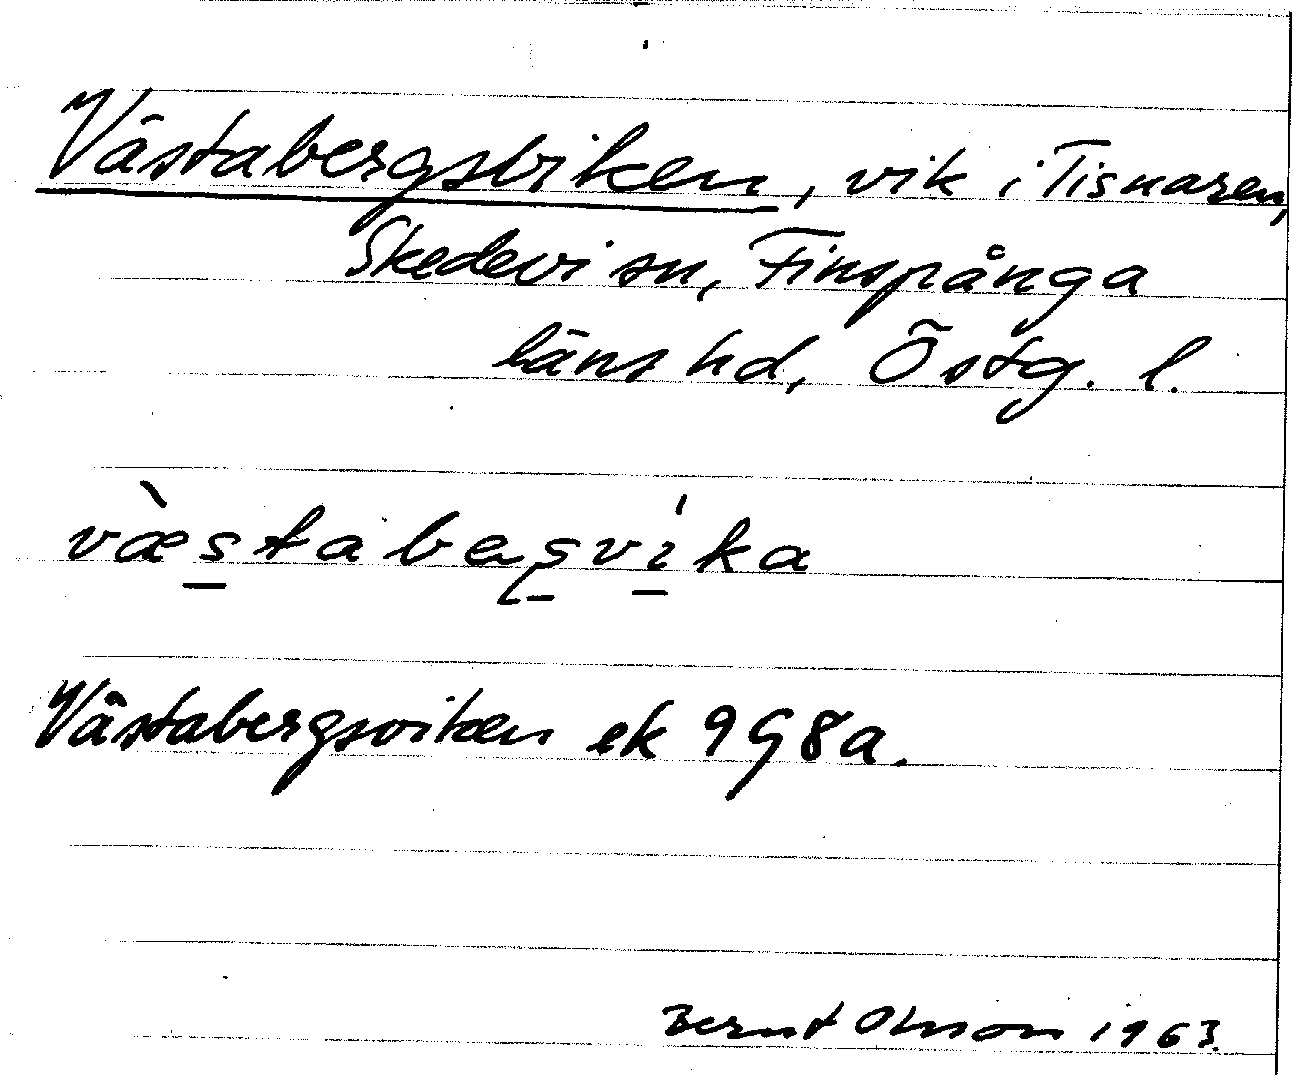 Västabergsviken, vik i Tisnaren,
Skedevi sn, Finspånga
läns hd, Östg. l.
væ̀stabeʂvíka
Västabergsviken ek 998a.
Bernt Olsson 1963.